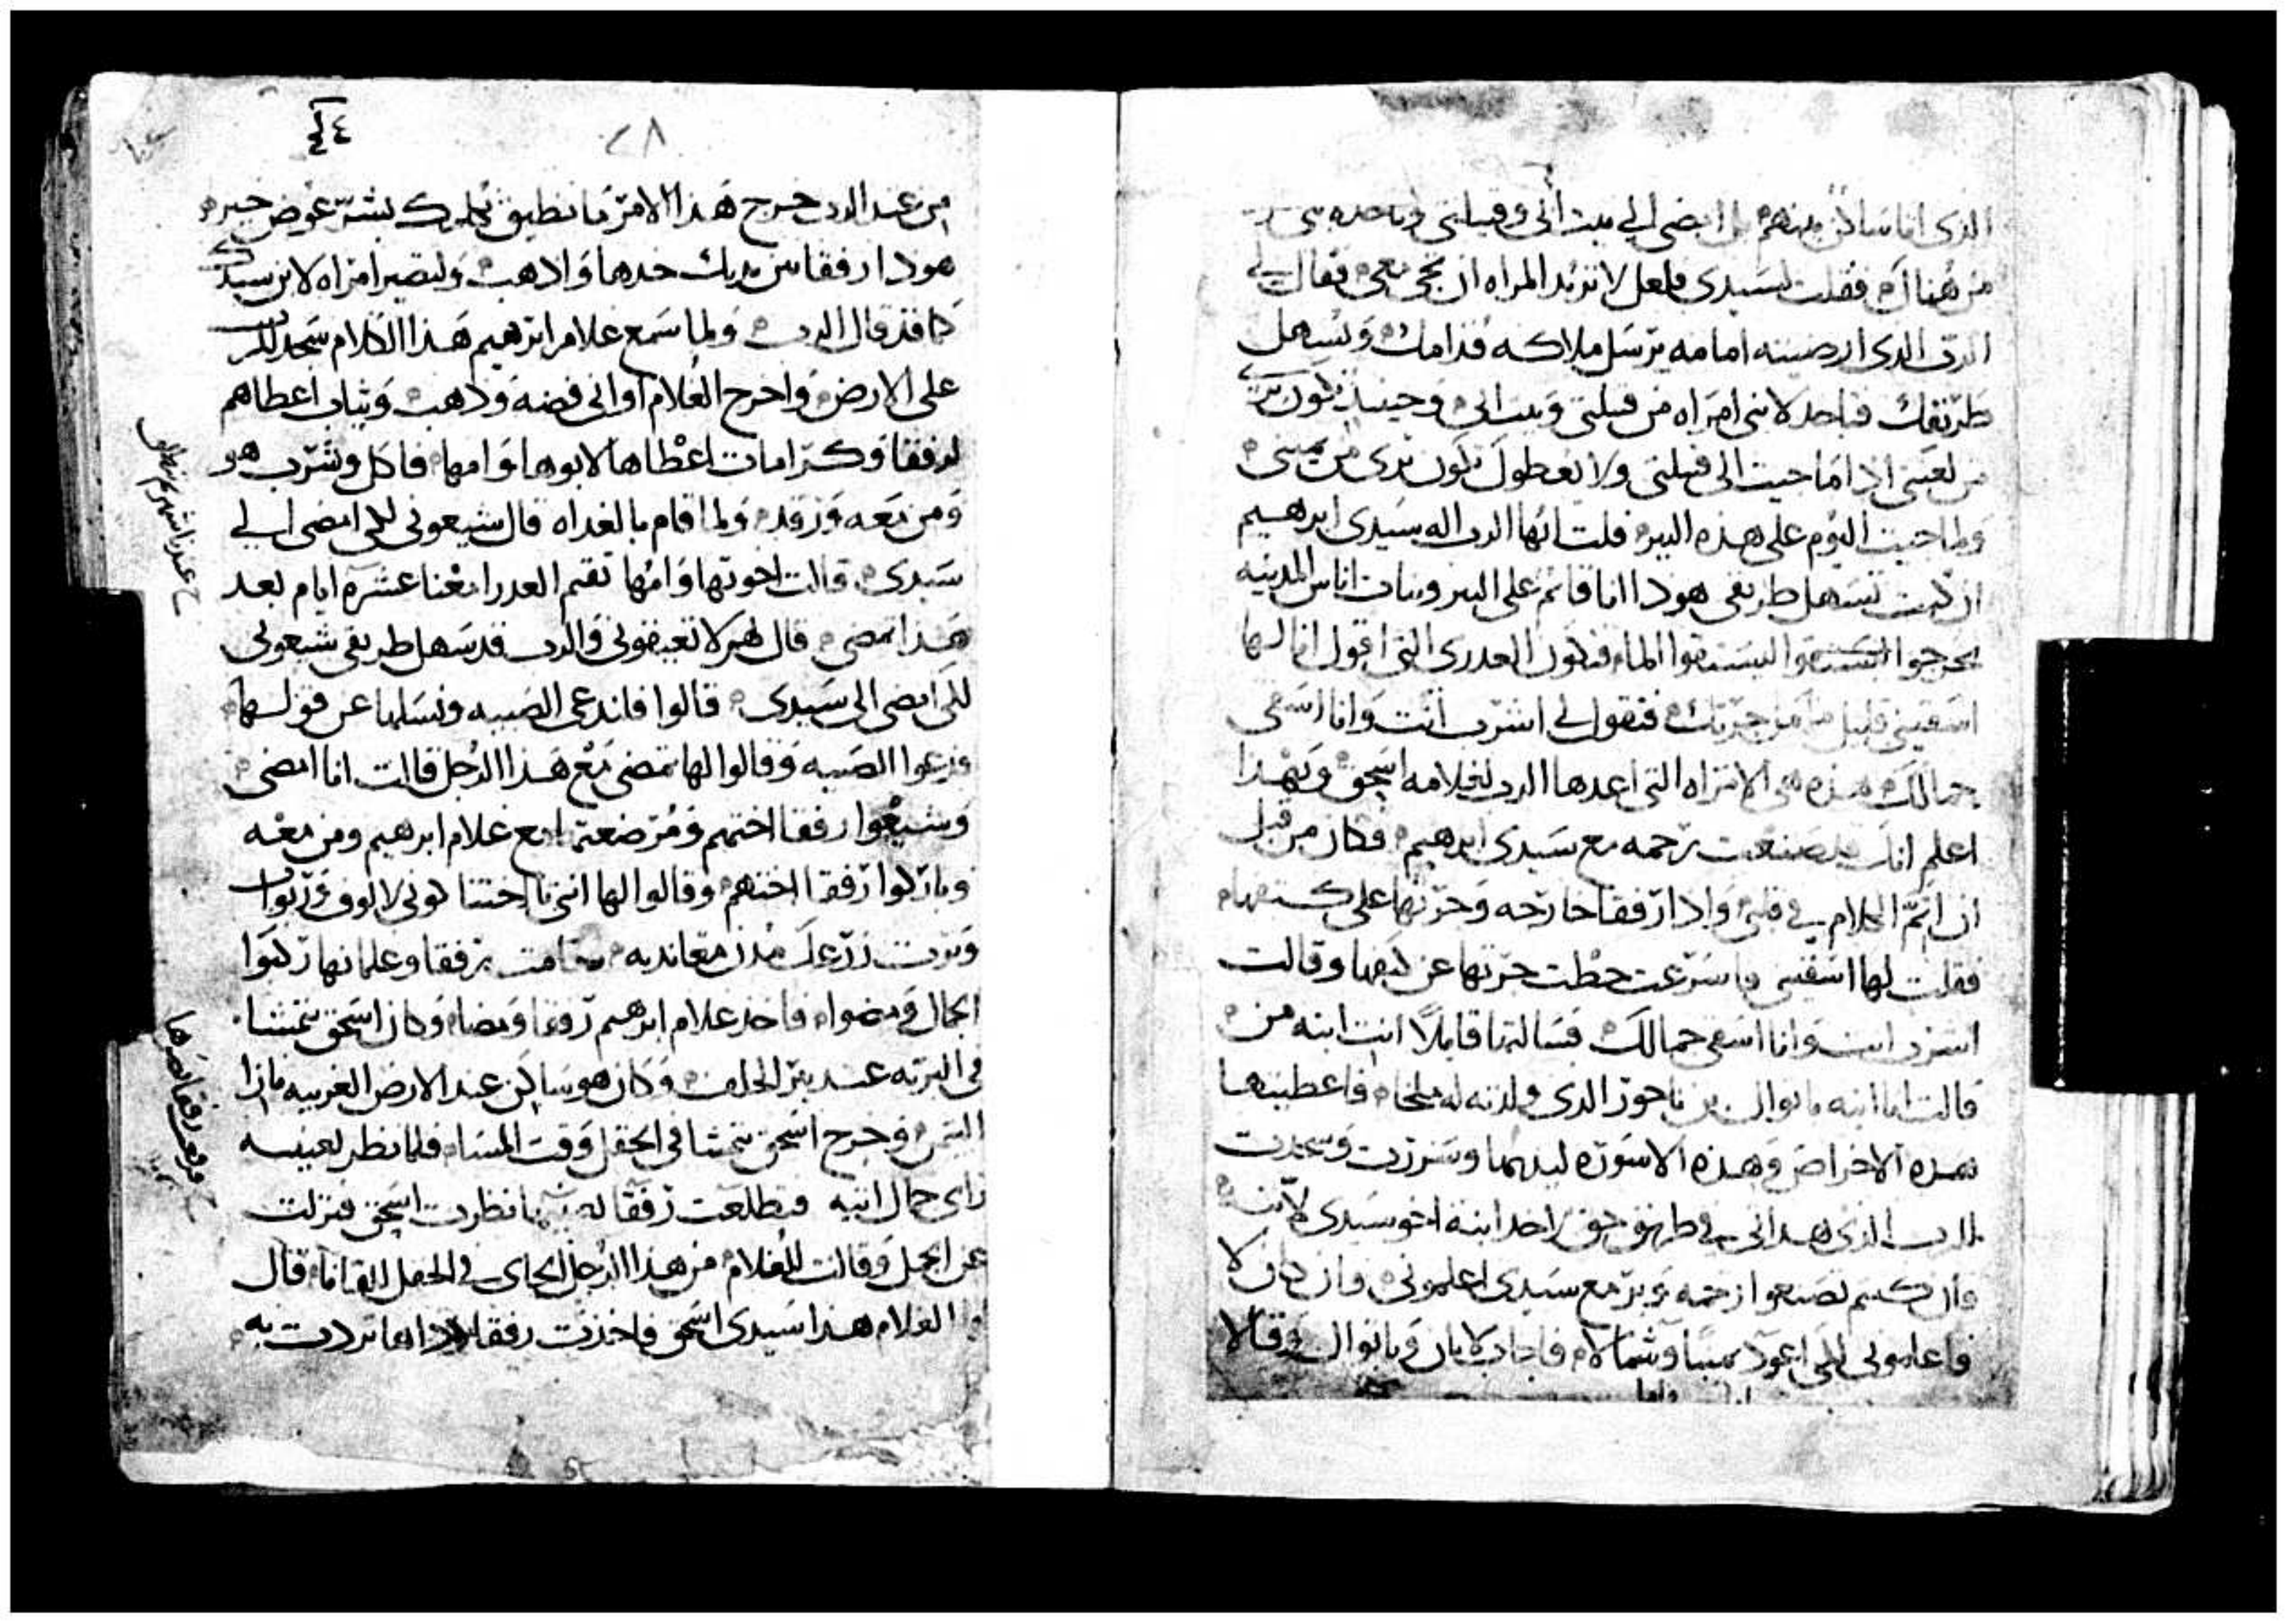 الذى انا ساكن بينهم بل امضى الى بيت ابى وقبيلتى
من هناك فقلت لسيدى فلعل لا تريد المراه ان تجى معى فقال لى
الرب الدى ارضيته امامه يرسل ملاكه قدامك ويسهل
طريقك فتاخد لابنى امراه من قبيلتى وبيت ابى وحينيذ تكون برى
من لعنتى اذا ما جيت الى قبيلتى ولا يعطوك تكون برى من يمينى
ولما جيت اليوم على هذه البير قلت ايها الرب اله سيدى ابرهيم
ان كنت تسهل طريقى هودا انا قايم على البير وبنات اناس المدينه
يخرجوا ليستقوا الماء فتكون العدرى التى اقول انا لها
اسقينى قليل ما من جرتك فتقول لى اشرب انت وانا اسقى
جمالك هذه هى الامراه التى اعدها الرب لغلامه اسحق وبهذا
اعلم انك صنعت رحمه مع سيدى ابرهيم فكان من قبل
ان اتم الكلام فى قلبى وادا رفقا خارجه وجرتها على كتفها
فقلت لها اسقينى فاسرعت حطت جرتها عن كتفها وقالت
اشرب انت وانا اسقى جمالك فسالتها قايلا انت ابنه من
قالت انا ابنه باتوال بن ناحور الدى ولدته له ملخا فاعطيتها
هده الاخراص وهذه الاسوره ليديها وسررت وسجدت
للرب الذى هدانى فى طريق حق لاخد ابنة اخو سيدى لابنه
وان كنتم تصنعوا رحمه وبر مع سيدى اعلمونى وان كان لا
فاعلمونى لكى اعود يمينا وشمالا فاجاب لابان وباتوال وقالا
٢٨
من عند الرب خرج هذا الامر ما نطيق نكلمك بشر عوض خير
هودا رفقا بين يديك خدها وادهب ولتصير امراه لابن سيدك
كما قد قال الرب ولما سمع غلام ابرهيم هذا الكلام سجد للرب
على الارض واخرج الغلام اوانى فضه وذهب وثياب اعطاهم
لرفقا وكرامات اعطاها لابوها وامها فاكل وشرب هو
ومن معه ورقد ولما قام بالغداه قال شيعونى لكى امضى الى
سيدى قالت اخوتها وامها تقيم العدرا معنا عشره ايام بعد
هذا تمضى قال لهم لا تعيقونى والرب قد سهل طريقى شيعونى
لكى امضى الى سيدى قالوا فلندعى الصبيه ونسلها عن قولها
فدعوا الصبيه وقالوا لها تمضى مع هذا الرجل قالت انا امضى
وشيعوا رفقا اختهم ومرضعتها مع غلام ابرهيم ومن معه
وباركوا رفقا اختهم وقالوا لها انتى يا اختنا كونى لالوف وربوات
ويرت زرعك مدن معانديه فقامت رفقا وغلمانها ركبوا
الجمال ومضوا فاخذ غلام ابرهيم رفقا ومضا وكان اسحق يتمشا
فى البريه عند بير الحلف وكان هو ساكن عند الارض الغربيه مازا
التيمن وخرج اسحق يتمشا فى الحقل وقت المسا فلما نظر بعينيه
راى جمال اتيه فتطلعت رفقا بعينيها نظرت اسحق فنزلت
عن الجمل وقالت للغلام من هذا الرجل الجاى فى الحقل للقانا قال
الغلام هذا سيدى اسحق فاخذت رفقا ردا لها تردت به